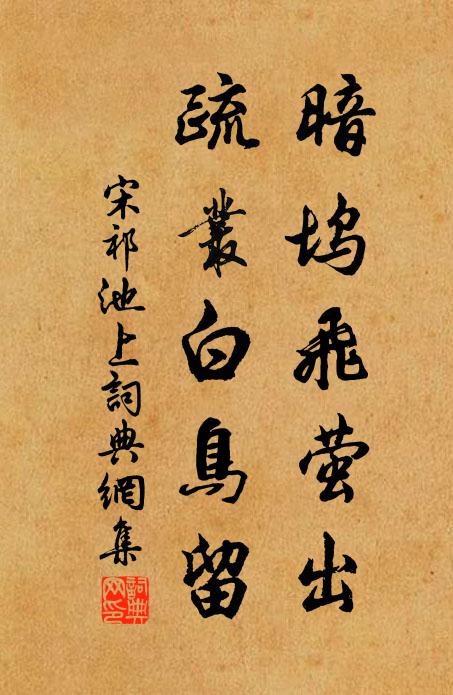 暗坞飛萤出
疏叢白鳥留
宋祁池上詞典網集
詞典网印